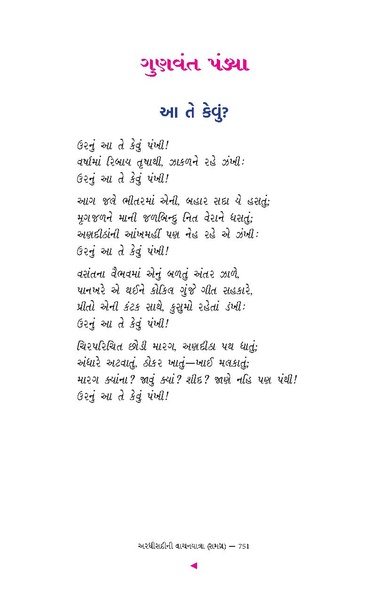 ગુણવંત પંડ્યા
આ તે કેવું?
ઉરનું આ તે કેવું પંખી!
વર્ષામાં રિબાય તૃષાથી, ઝાકળને રહે ઝંખી:
ઉરનું આ તે કેવું પંખી!
આગ જલે ભીતરમાં એની, બહાર સદા યે હસતું;
મૃગજળને માની જળબિન્દુ નિત વેરાને ધસતું;
અણદીઠાંની આંખમહીં પણ નેહ રહે એ ઝંખી:
ઉરનું આ તે કેવું પંખી!
વસંતના વૈભવમાં એનું બળતું અંતર ઝાળે,
પાનખરે એ થઈને કોકિલ ગુંજે ગીત સહકારે,
પ્રીતો એની કંટક સાથે, કુસુમો રહેતાં ડંખી:
ઉરનું આ તે કેવું પંખી!
ચિરપરિચિત છોડી મારગ, અણદીઠા પથ ધાતું;
અંધારે અટવાતું, ઠોકર ખાતું—ખાઈ મલકાતું;
મારગ ક્યાંના? જાવું ક્યાં? શીદ? જાણે નહિ પણ પંથી!
ઉરનું આ તે કેવું પંખી!
અરધીસદીની વાચનયાત્રા (સમગ્ર) — 751